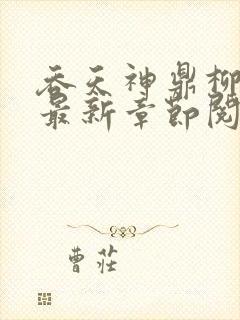 吞天神鼎柳
最新章节阅
曹莊